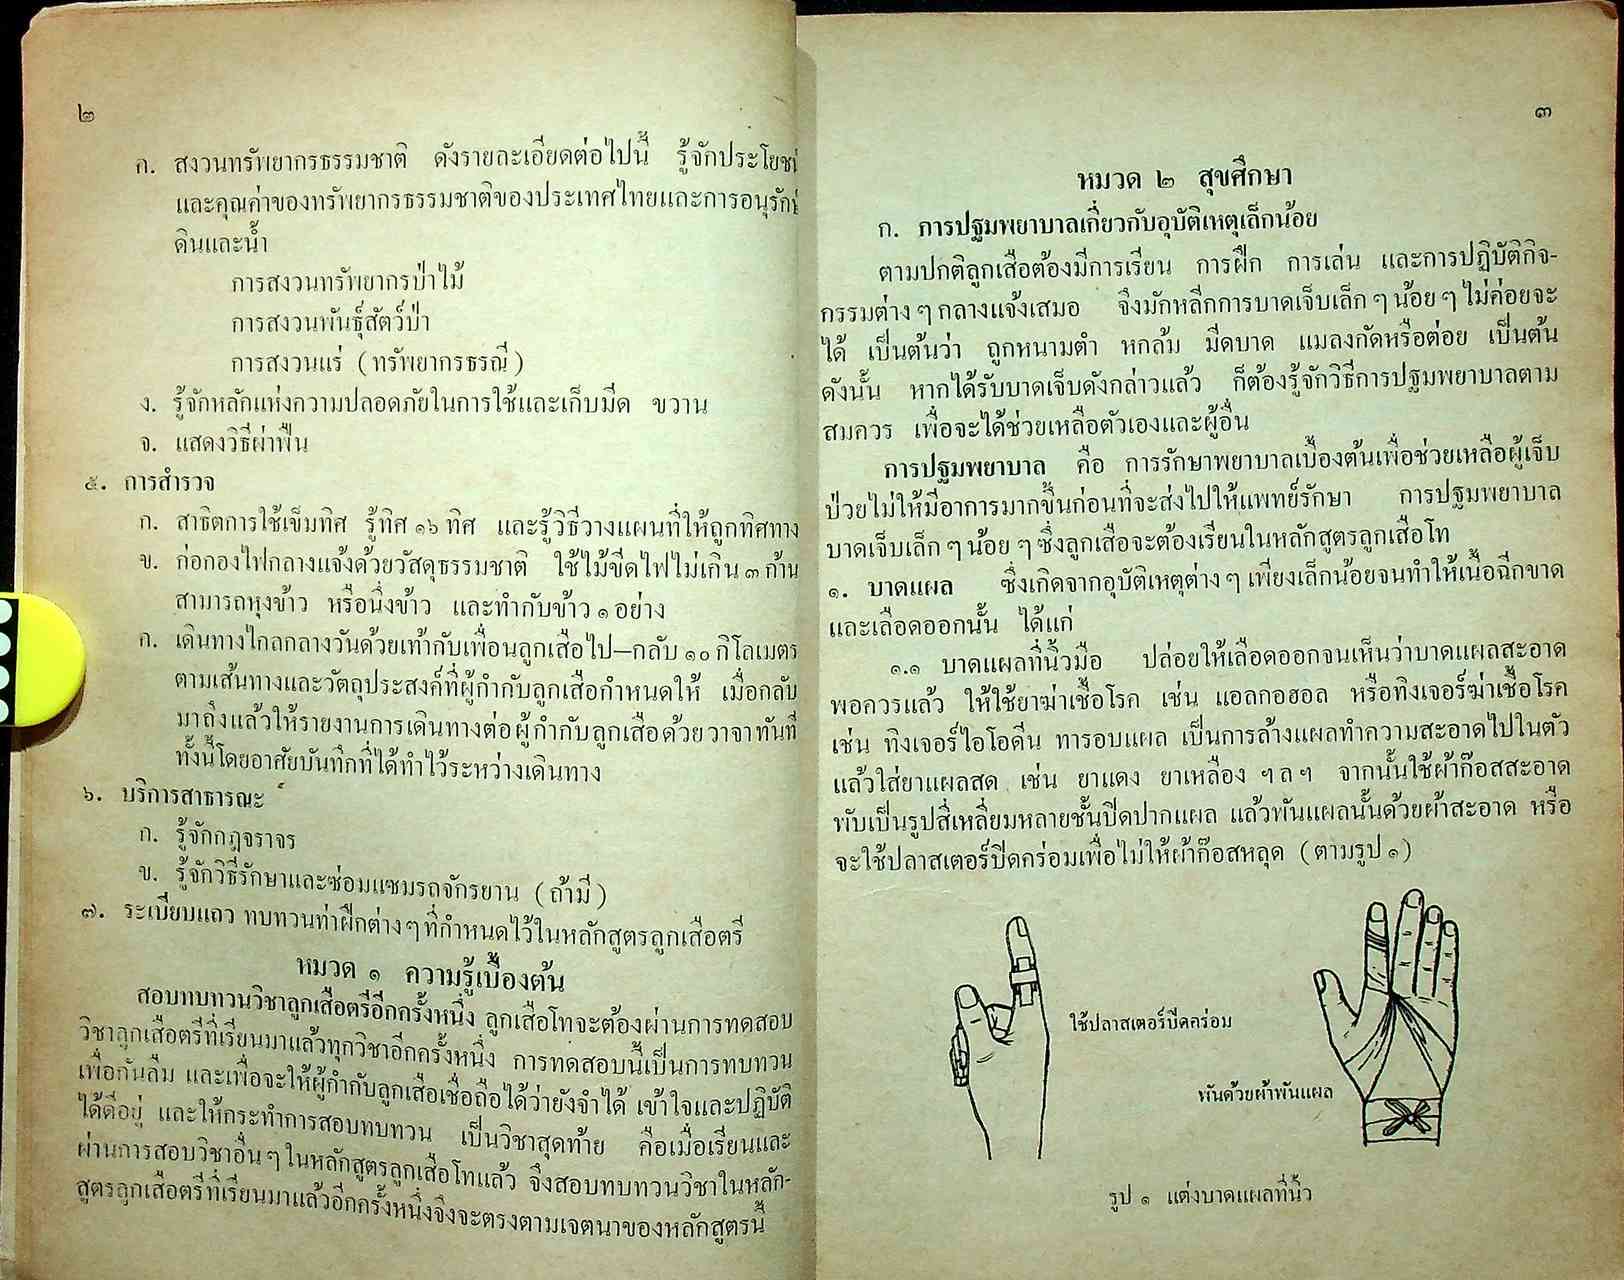 ๒
ก. สงวนทรัพยากรธรรมชาติ ดังรายละเอียดต่อไปนี้ รู้จักประโยชน์
และคุณค่าของทรัพยากรธรรมชาติของประเทศไทยและการอนุรักษ์
ดินและน้ำ
การสงวนทรัพยากรป่าไม้
การสงวนพันธุ์สัตว์ป่า
การสงวนแร่ (ทรัพยากรธรณี)
ง. รู้จักหลักแห่งความปลอดภัยในการใช้และเก็บมีด ขวาน
จ. แสดงวิธีผ่าฟืน
๕. การสำรวจ
ก. สาธิตการใช้เข็มทิศ รู้ทิศ ๑๖ ทิศ และรู้วิธีวางแผนที่ให้ถูกทิศทาง
ข. ก่อกองไฟกลางแจ้งด้วยวัสดุธรรมชาติ ใช้ไม้ขีดไฟไม่เกิน ๓ ก้าน
สามารถหุงข้าว หรือนึ่งข้าว และทำกับข้าว ๑ อย่าง
ก. เดินทางไกลกลางวันด้วยเท้ากับเพื่อนลูกเสือไป—กลับ ๑๐ กิโลเมตร
ตามเส้นทางและวัตถุประสงค์ที่ผู้กำกับลูกเสือกำหนดให้ เมื่อกลับ
มาถึงแล้วให้รายงานการเดินทางต่อผู้กำกับลูกเสือด้วยวาจาทันที
ทั้งนี้โดยอาศัยบันทึกที่ได้ทำไว้ระหว่างเดินทาง
๖. บริการสาธารณะ
ก. รู้จักกฎจราจร
ข. รู้จักวิธีรักษาและซ่อมแซมรถจักรยาน (ถ้ามี)
๗. ระเบียบแถว ทบทวนท่าฝึกต่าง ๆ ที่กำหนดไว้ในหลักสูตรลูกเสือตรี
หมวด ๑ ความรู้เบื้องต้น
สอบทบทวนวิชาลูกเสือตรีอีกครั้งหนึ่ง ลูกเสือโทจะต้องผ่านการทดสอบ
วิชาลูกเสือตรีที่เรียนมาแล้วทุกวิชาอีกครั้งหนึ่ง การทดสอบนี้เป็นการทบทวน
เพื่อกันลืม และเพื่อจะให้ผู้กำกับลูกเสือเชื่อถือได้ว่ายังจำได้ เข้าใจและปฏิบัติ
ได้ดีอยู่ และให้กระทำการสอบทบทวน เป็นวิชาสุดท้าย คือเมื่อเรียนและ
ผ่านการสอบวิชาอื่น ๆ ในหลักสูตรลูกเสือโทแล้ว จึงสอบทบทวนวิชาในหลัก-
สูตรลูกเสือตรีที่เรียนมาแล้วอีกครั้งหนึ่งจึงจะตรงตามเจตนาของหลักสูตรนี้
๓
หมวด ๒ สุขศึกษา
ก. การปฐมพยาบาลเกี่ยวกับอุบัติเหตุเล็กน้อย
ตามปกติลูกเสือต้องมีการเรียน การฝึก การเล่น และการปฏิบัติกิจ-
กรรมต่าง ๆ กลางแจ้งเสมอ จึงมักหลีกการบาดเจ็บเล็ก ๆ น้อย ๆ ไม่ค่อยจะ
ได้ เป็นต้นว่า ถูกหนามตำ หกล้ม มีดบาด แมลงกัดหรือต่อย เป็นต้น
ดังนั้น หากได้รับบาดเจ็บดังกล่าวแล้ว ก็ต้องรู้จักวิธีการปฐมพยาบาลตาม
สมควร เพื่อจะได้ช่วยเหลือตัวเองและผู้อื่น
การปฐมพยาบาล คือ การรักษาพยาบาลเบื้องต้นเพื่อช่วยเหลือผู้เจ็บ
ป่วยไม่ให้มีอาการมากขึ้นก่อนที่จะส่งไปให้แพทย์รักษา การปฐมพยาบาล
บาดเจ็บเล็ก ๆ น้อย ๆ ซึ่งลูกเสือจะต้องเรียนในหลักสูตรลูกเสือโท
๑. บาดแผล ซึ่งเกิดจากอุบัติเหตุต่าง ๆ เพียงเล็กน้อยจนทำให้เนื้อฉีกขาด
และเลือดออกนั้น ได้แก่
๑.๑ บาดแผลที่นิ้วมือ ปล่อยให้เลือดออกจนเห็นว่าบาดแผลสะอาด
พอควรแล้ว ให้ใช้ยาฆ่าเชื้อโรค เช่น แอลกอฮอล หรือทิงเจอร์ฆ่าเชื้อโรค
เช่น ทิงเจอร์ไอโอดีน ทารอบแผล เป็นการล้างแผลทำความสะอาดไปในตัว
แล้วใส่ยาแผลสด เช่น ยาแดง ยาเหลือง ฯลฯ จากนั้นใช้ผ้าก๊อสสะอาด
พับเป็นรูปสี่เหลี่ยมหลายชั้นปิดปากแผล แล้วพันแผลนั้นด้วยผ้าสะอาด หรือ
จะใช้ปลาสเตอร์ปิดคร่อมเพื่อไม่ให้ผ้าก๊อสหลุด (ตามรูป ๑)
ใช้ปลาสเตอร์ปิดคร่อม
พันด้วยผ้าพันแผล
รูป ๑ แต่งบาดแผลที่นิ้ว